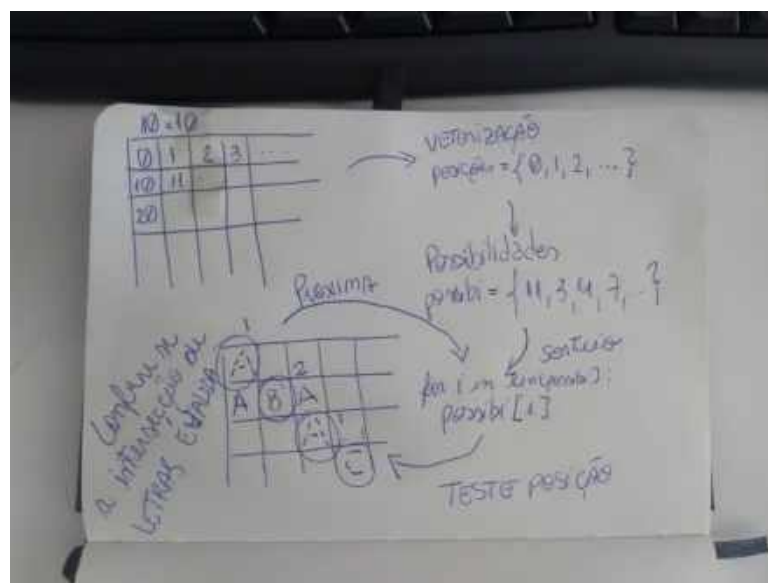 10 x 10
0 1 2 3 ...
10 11 ..
20
VETORIZAÇÃO
posição = {0, 1, 2, ...}
Possibilidades
possibi = {11, 3, 4, 7, ..}
sorteio
for i in
possibi [i]
TESTE POSIÇÃO
Próxima
1
A
2
A B A
A 1
C
a intersecção de
LETRAS É VÁLIDA